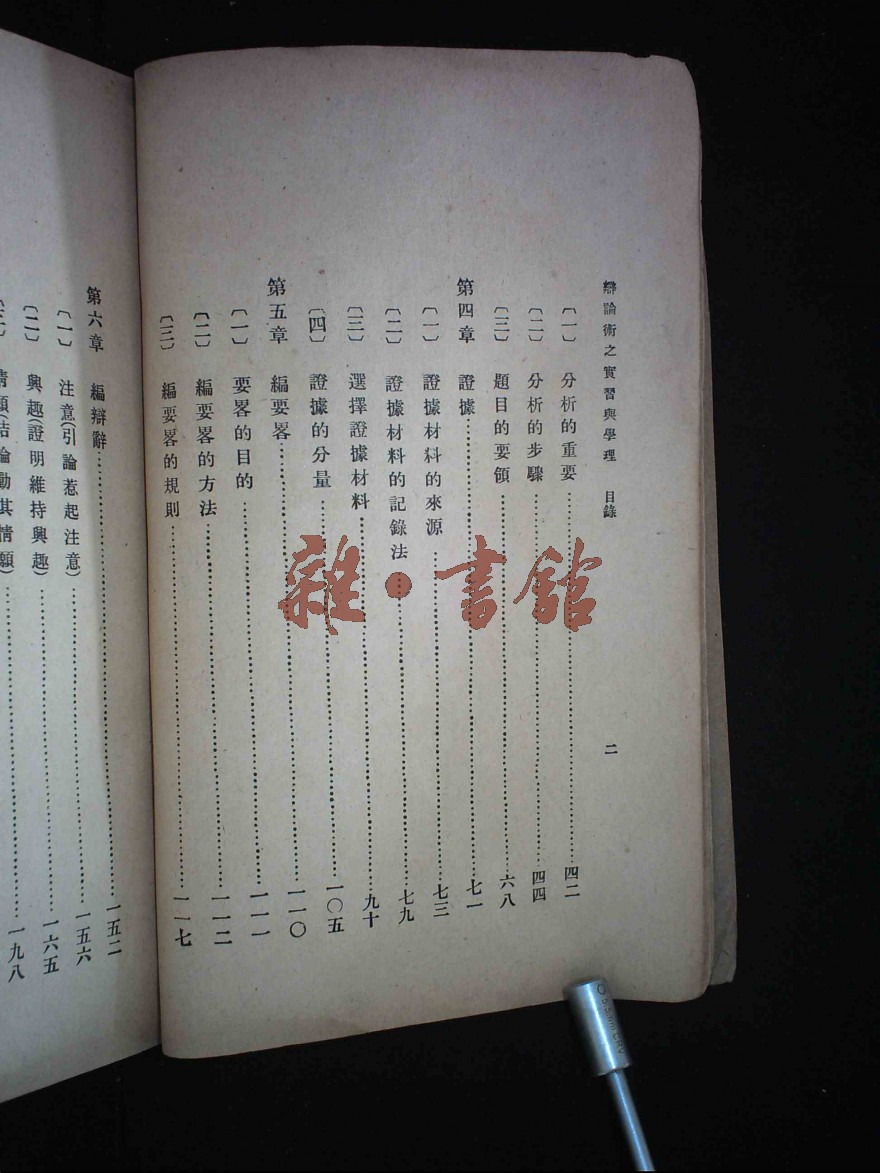 辯論術之實習與學理　目錄　二
〔一〕　分析的重要……四二
〔二〕　分析的步驟……四四
〔三〕　題目的要領……六八
第四章　證據……七一
〔一〕　證據材料的來源……七三
〔二〕　證據材料的記錄法……七九
〔三〕　選擇證據材料……九十
〔四〕　證據的分量……一〇五
第五章　編要畧……一一〇
〔一〕　要畧的目的……一一一
〔二〕　編要畧的方法……一一二
〔三〕　編要畧的規則……一一七
第六章　編辯辭……一五二
〔一〕　注意(引論惹起注意)……一五六
〔二〕　興趣(證明維持興趣)……一六五
〔三〕　情願(結論動其情願)……一九八
雜·書館